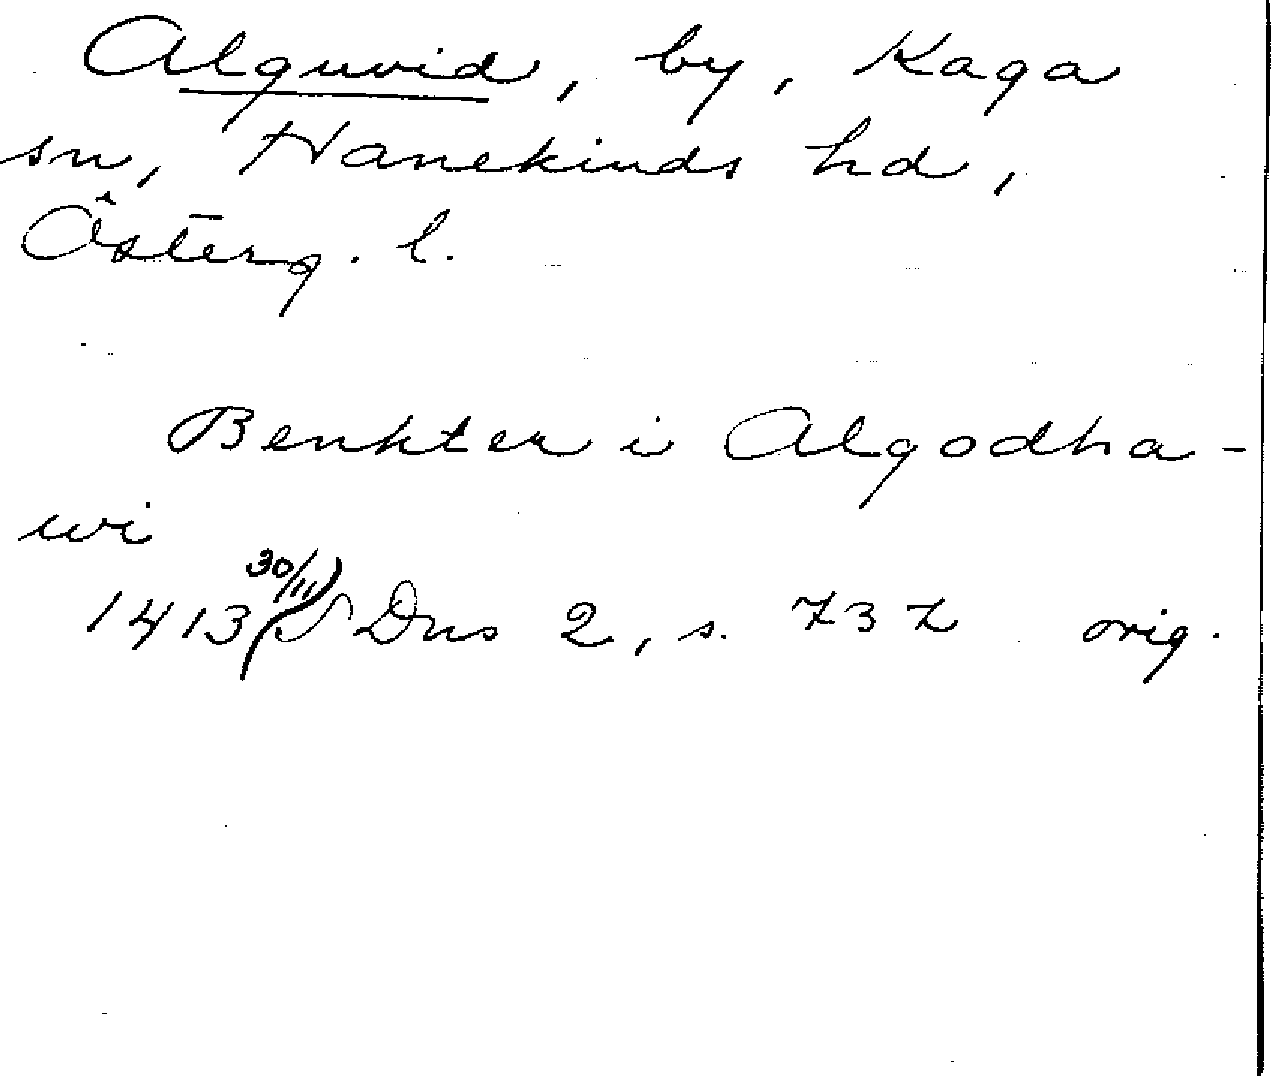 Alguvid, by, Kaga
sn, Hanekinds hd,
Österg. l.
Benkter i Algodha-
wi
1413 30/11 SDns 2, s. 737 orig.